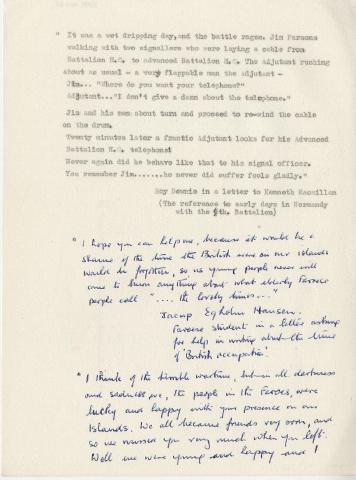 " It was a wet dripping day,and the battle rages. Jim Parsons
walking with two signallers who were laying a cable from
Battalion H.Q. to advanced Battalion H.Q. The Adjutant rushing
about as usual - a very flappable man the adjutant -
Jim... "Where do you want your telephone?"
Adjutant..."I don't give a damn about the telephone."
Jim and his men about turn and proceed to re-wind the cable
on the drum.
Twenty minutes later a frantic Adjutant looks for his Advanced
Battalion H.Q. telephone!
Never again did he behave like that to his signal officer.
You remember Jim.......he never did suffer fools gladly."
Roy Downie in a letter to Kenneth Macmillan
(The reference to early days in Normandy
with the th. Battalion)
" I hope you can help me, because it would be a
shame if the time the British were on our islands
would be forgotten, so us young people never will
come to know anything about what elderly Faroese
people call ".... the lovely times..."
Jacup Egholm Hansen.
Faroese student in a letter asking
for help in writing about the time
of 'British occupation'.
" I think of the terrible wartime, but in all darkness
and sadness we, the people in the Faroes, were
lucky and happy with your presence on our
Islands. We all became friends very soon, and
so we missed you very much when you left.
Well we were young and happy and !